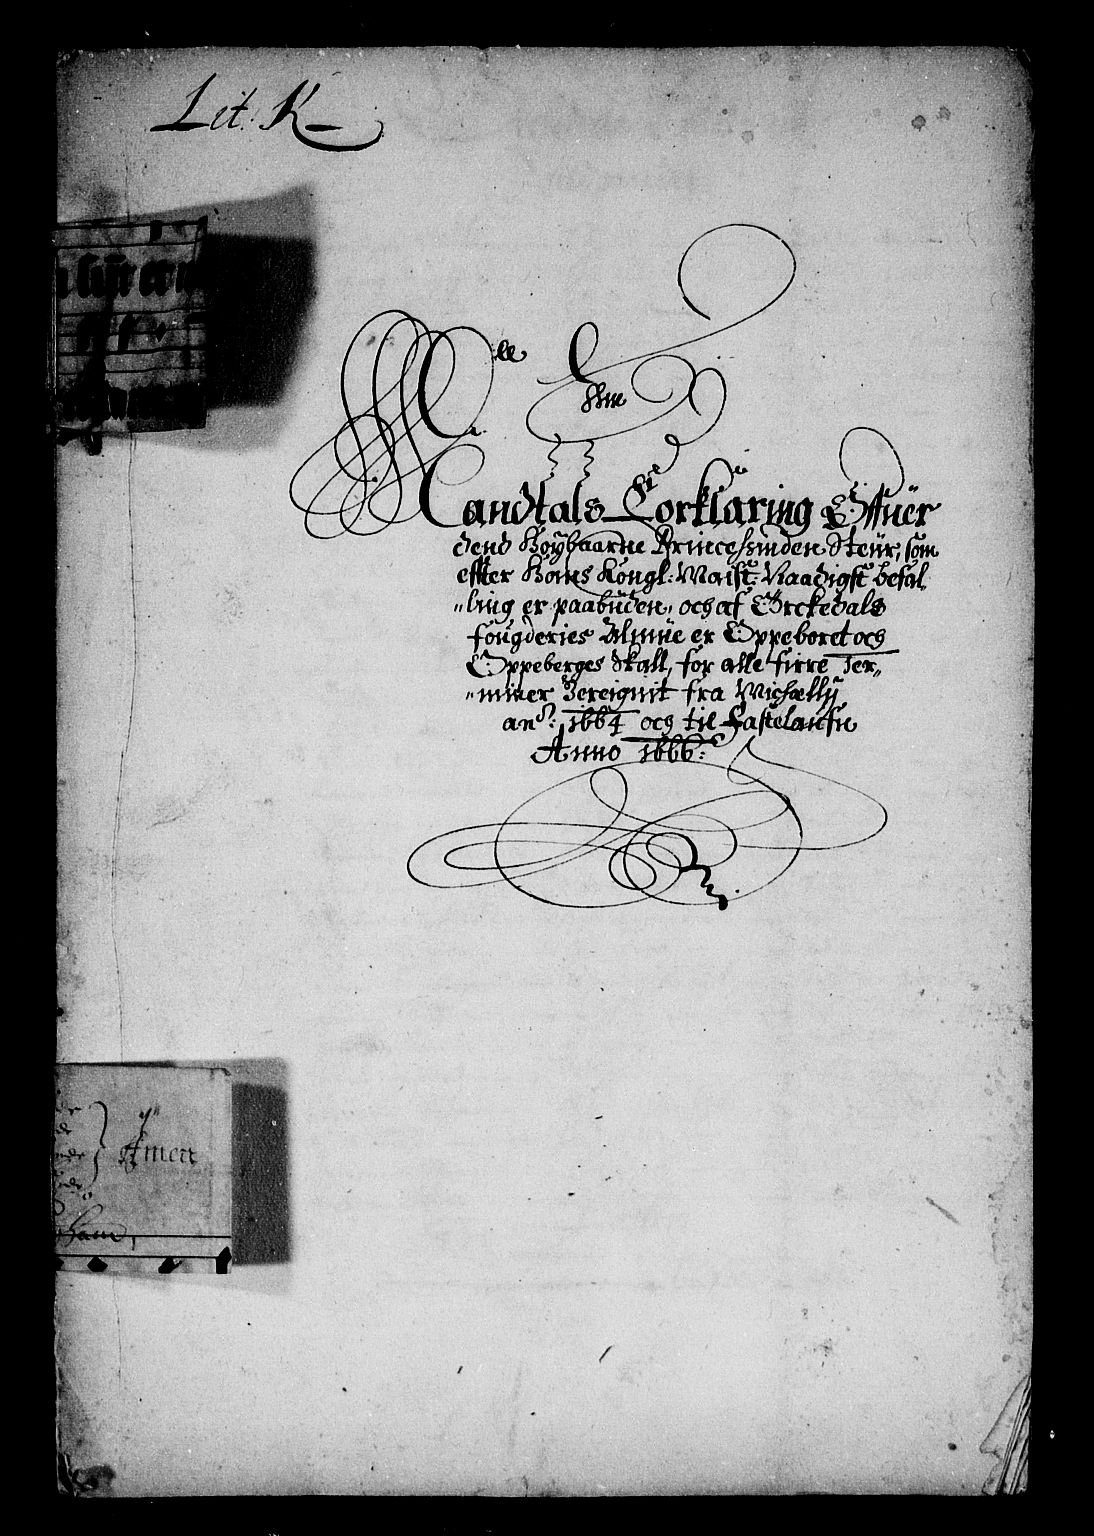 Lit: K
Mandtals Forklaring Offuer
dend Höybaarne Princessinden Steur, som
effter Hans Kongl: Maÿst: Naadigst befal„
„ling er paabuden, och af Orckedals
fougderies Almue er Oppeboret och
Oppeberges skall, for alle firre Ter„
„miner Bereignit fra Michaelÿ
ano: 1664 och til Fastelaufn
Anno 1666:
Amen